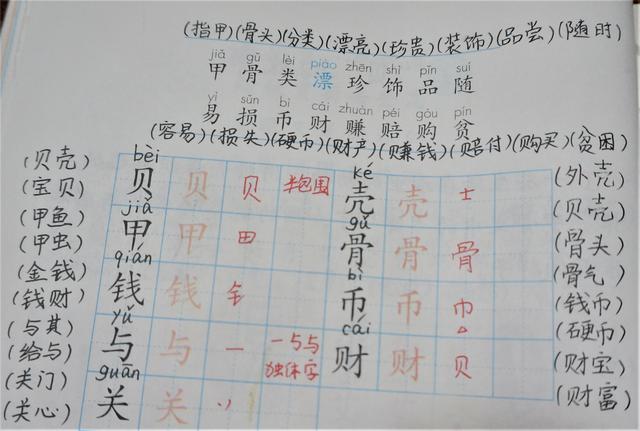 (指甲)(骨头)(分类)(漂亮)(珍贵)(装饰)(品尝)(随时)
jiǎ gǔ lèi piào zhēn shì pǐn suí
甲 骨 类 漂 珍 饰 品 随
yì sǔn bì cái zhuàn péi gòu pín
易 损 币 财 赚 赔 购 贫
(容易)(损失)(硬币)(财产)(赚钱)(赔付)(购买)(贫困)
bèi ké
(贝壳) 贝 贝 贝 半包围 壳 壳 士 (外壳)
(宝贝) (贝壳)
jiǎ gǔ
(甲鱼) 甲 甲 田 骨 骨 骨 (骨头)
(甲虫) (骨气)
qián bì
(金钱) 钱 钱 钅 币 币 巾 (钱币)
(钱财) (硬币)
yǔ cái
(与其) 与 与 一 一与与 财 财 贝 (财宝)
(给与) 独体字 (财富)
guān
(关门) 关 关
(关心)